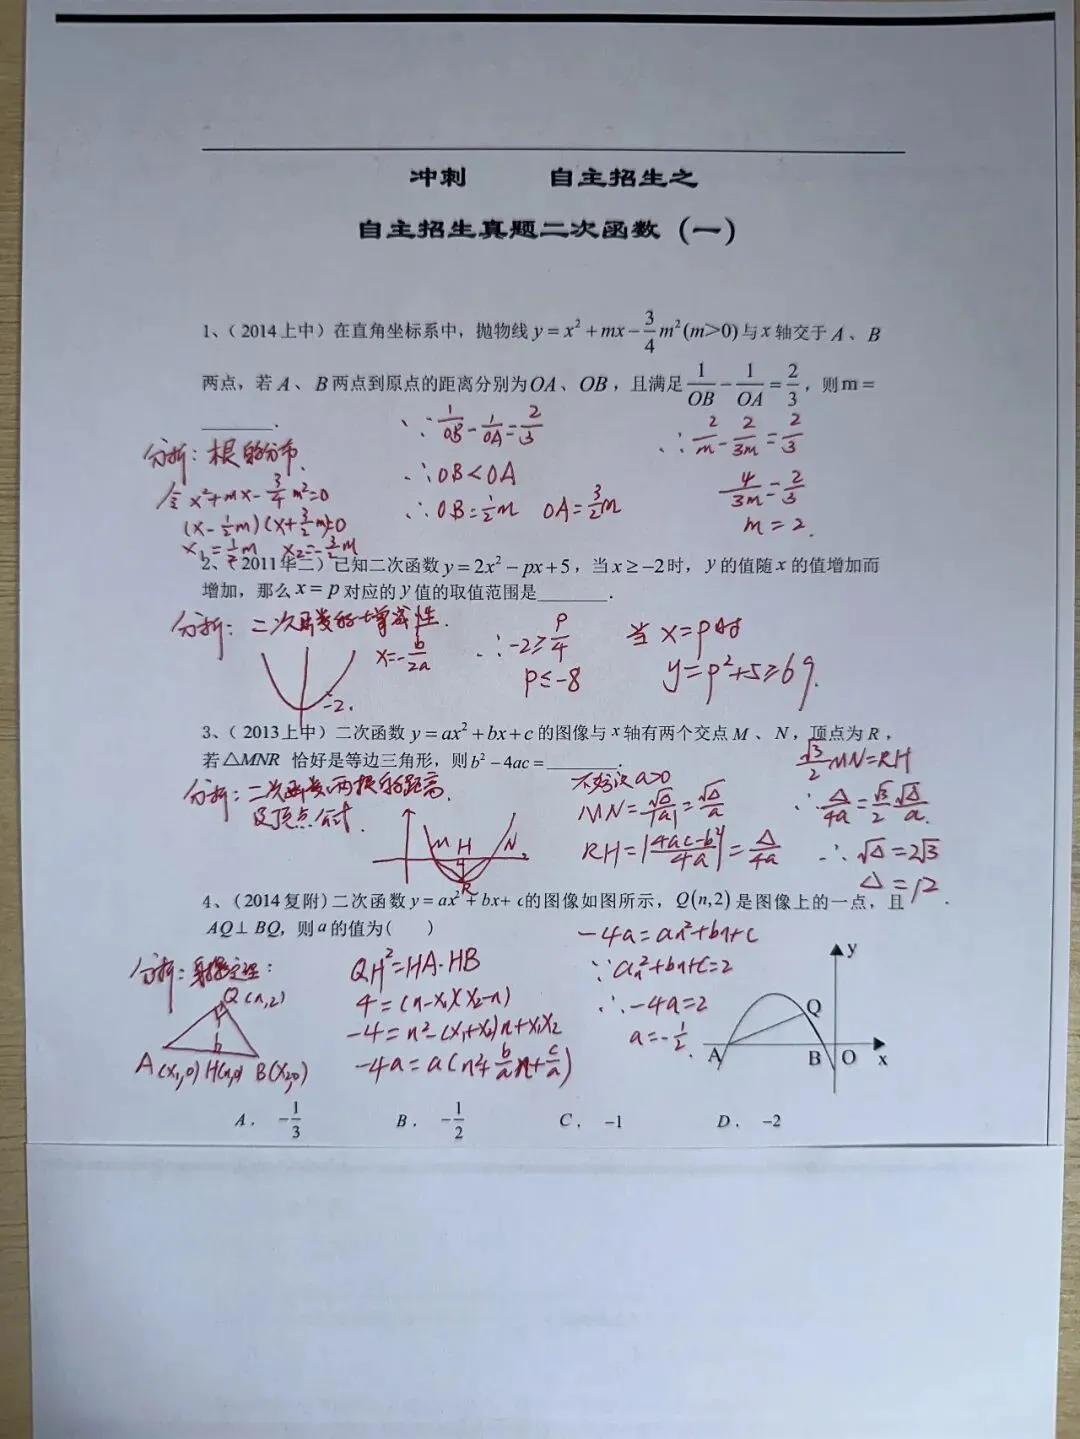 冲刺 自主招生之
自主招生真题二次函数（一）
1、（2014上中）在直角坐标系中，抛物线 y = x² + mx − 3/4 m² (m>0) 与 x 轴交于 A 、 B
两点，若 A 、 B 两点到原点的距离分别为 OA、 OB ，且满足 1/OB − 1/OA = 2/3 ，则 m =
________.
分析：根的分布.
令 x²+mx−3/4 m²=0
(x−1/2 m)(x+3/2 m)=0
x₁=1/2 m x₂=−3/2 m
∵ 1/OB − 1/OA = 2/3
∴ OB<OA
∴ OB=1/2 m OA=3/2 m
∴ 2/m − 2/3m = 2/3
4/3m = 2/3
m = 2.
2、（2011华二）已知二次函数 y = 2x² − px + 5 ，当 x ≥ −2 时， y 的值随 x 的值增加而
增加，那么 x = p 对应的 y 值的取值范围是________.
分析：二次函数的增减性.
−2.
x=−b/2a
∴ −2≥p/4
p≤−8
当 x=p时
y=p²+5≥69.
3、（2013上中）二次函数 y = ax² + bx + c 的图像与 x 轴有两个交点 M 、 N ，顶点为 R ，
若 △MNR 恰好是等边三角形，则 b² − 4ac = ________.
分析：二次函数两根的距离
及顶点公式.
M H N
R
不妨设 a>0
MN=√Δ/|a|=√Δ/a
RH=|4ac−b²/4a|=Δ/4a
√3/2 MN=RH
∴ Δ/4a=√3/2 √Δ/a.
∴ √Δ=2√3
Δ=12.
4、（2014复附）二次函数 y = ax² + bx + c 的图像如图所示， Q(n,2) 是图像上的一点，且
AQ⊥BQ，则 a 的值为( )
分析：射影定理：
Q(n,2)
h
A(x₁,0) H(n,0) B(x₂,0)
QH²=HA·HB
4=(n−x₁)(x₂−n)
−4=n²−(x₁+x₂)n+x₁x₂
−4a=a(n²+b/a n+c/a)
−4a=an²+bn+c
∵ an²+bn+c=2
∴ −4a=2
a=−1/2.
y
Q
A B O x
A. −1/3 B. −1/2 C. −1 D. −2